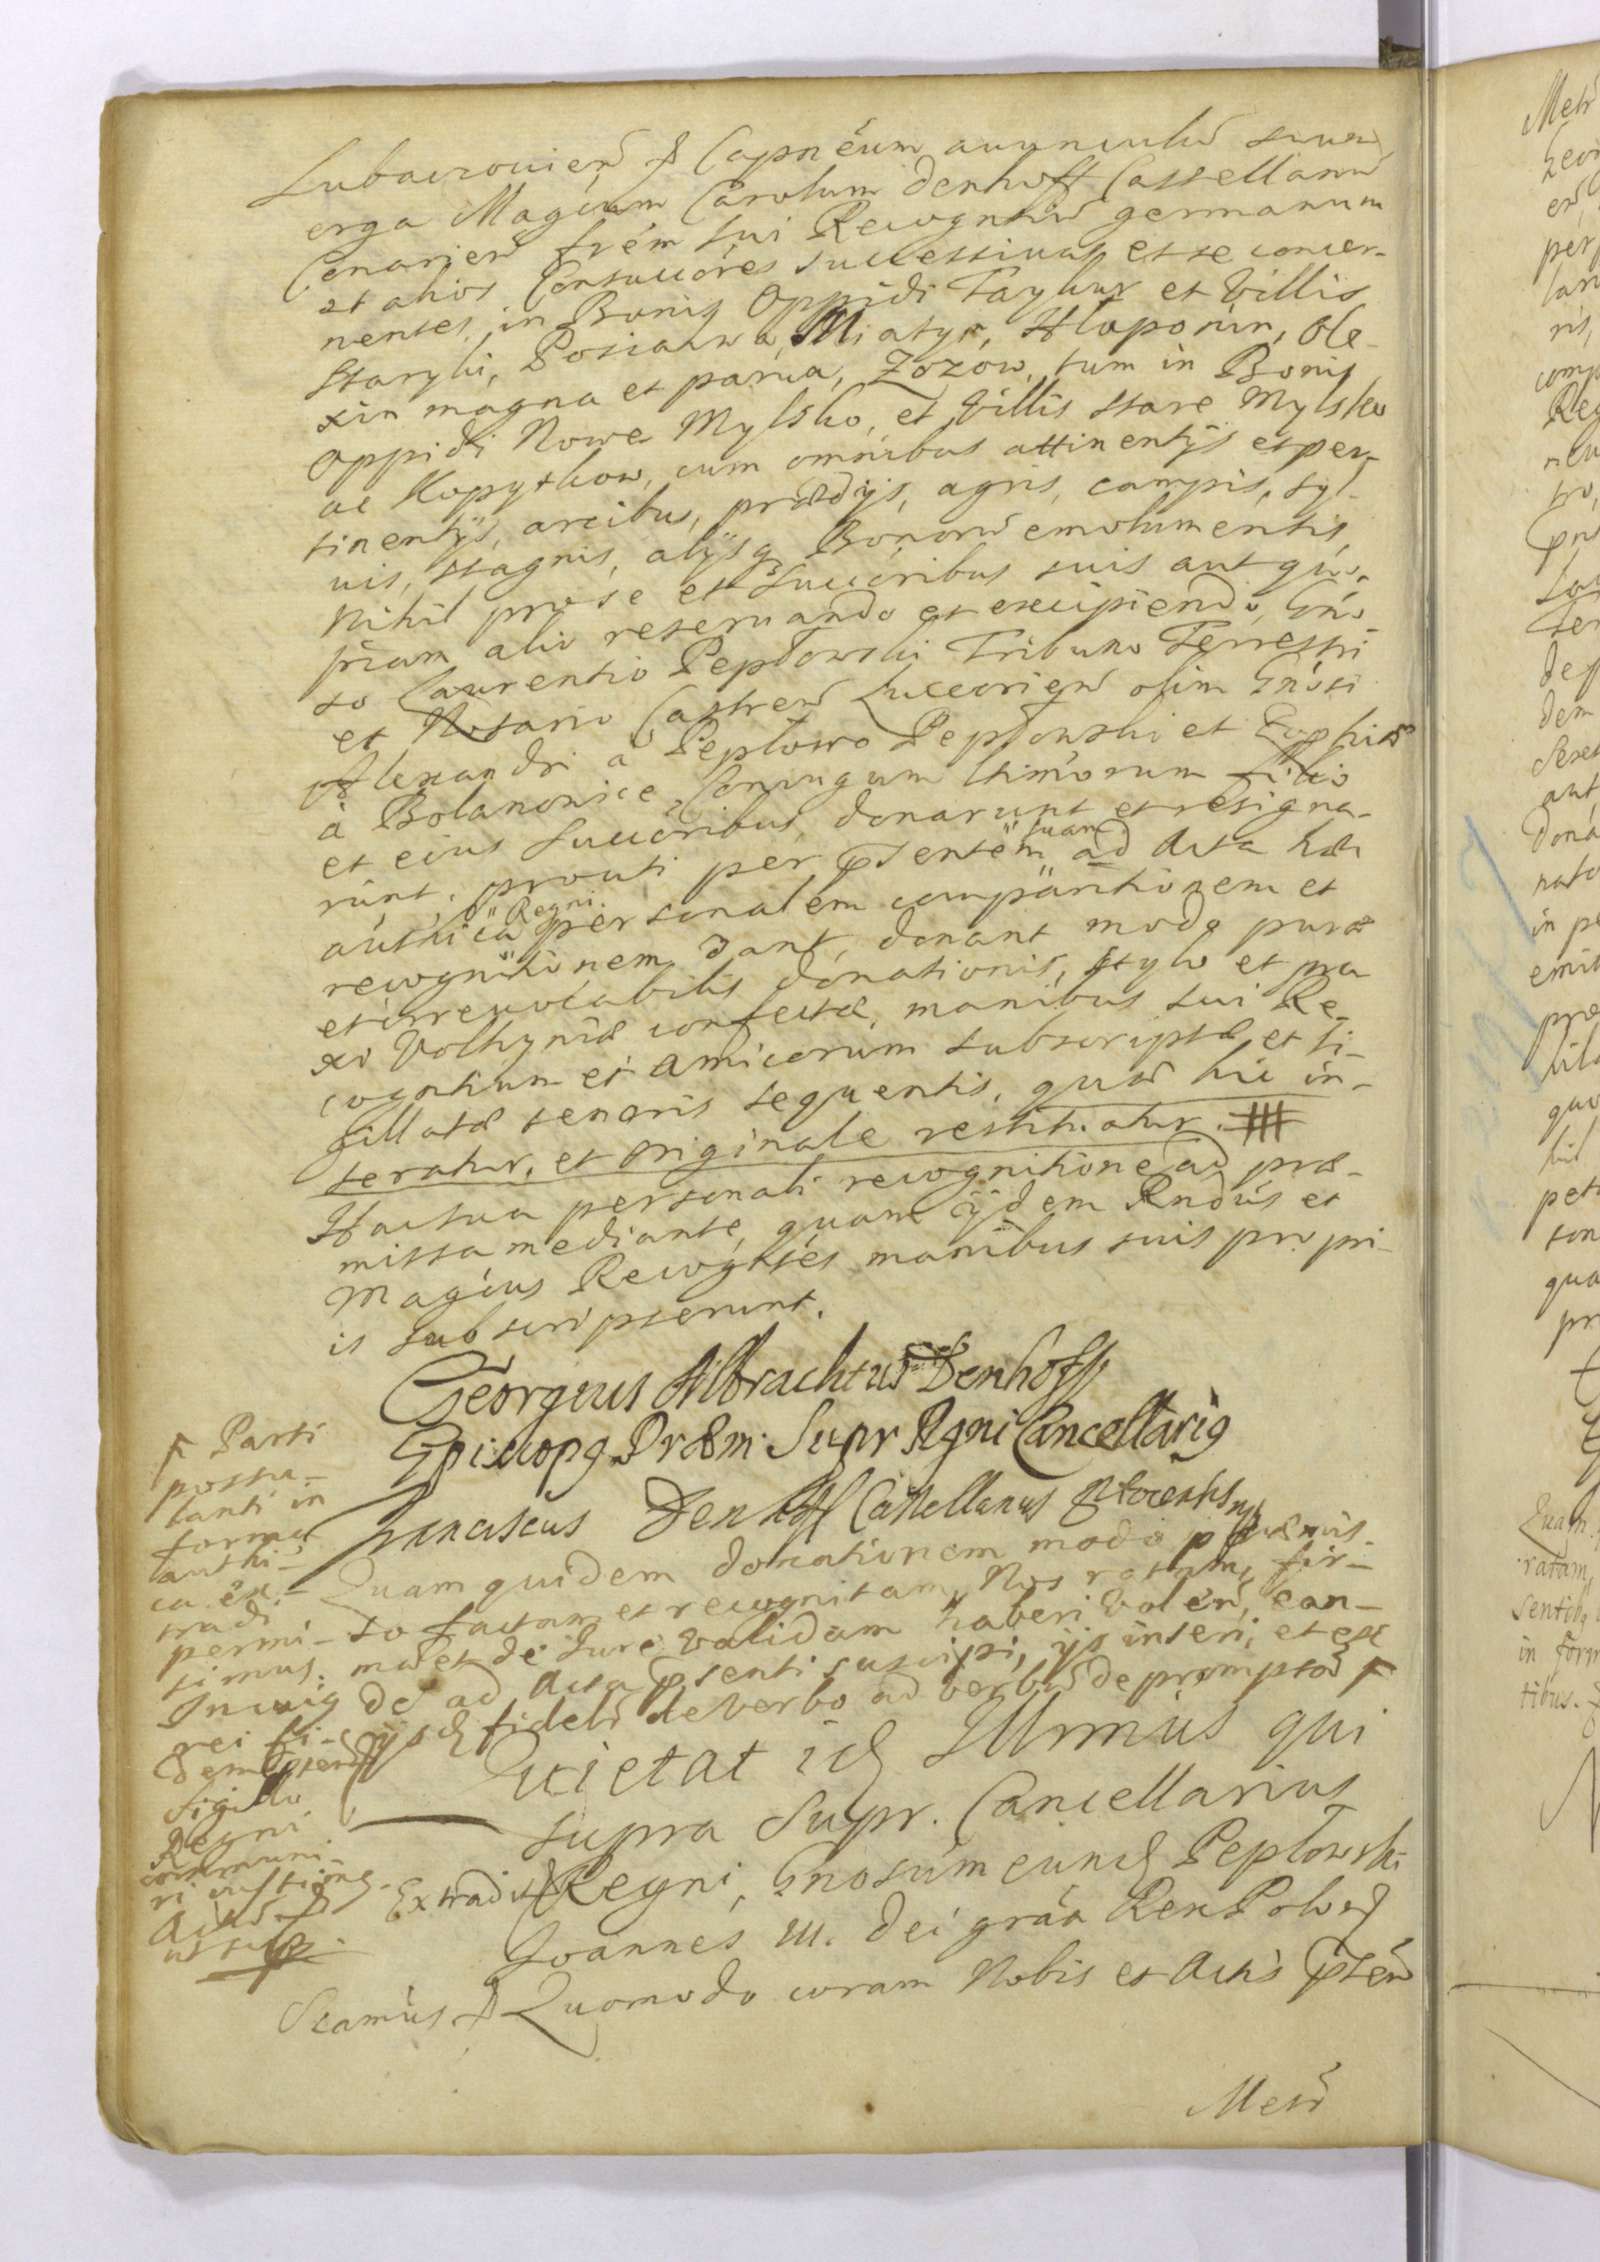 Lubaczovien̄ & Capnéum avunculū suum
erga Magcum Carolum Denhoff Castellanū
Conarien̄ frém sui Recogntiū germanum
et alios Consuccóres successivas et se concer-
nentes, in Bonis Oppidi Taykury et Villis
Staryki, Posiahwa, Miatyn, Hłaponin, Ole-
xin magna et parva, Zozow, tum in Bonis
Oppidi Nowe Mylsko, et Villis stare Mylsko
ac Kopytkow, cum omnibus attinentijs et per-
tinentijs, arcibus, prædijs, agris, campis, syl-
vis, stagnis, alijsq Bonorū emolumentis,
Nihil pro se et Succoribus suis aut quó-
piam alio reservando et excipiendo, Gnó-
so Laurentio Pepłowski Tribuno Terrestri
et Notario Castren̄ Luceorien̄ olim Gnósi
Alexandri a Pepłowo Pepłowski et Eophiæ
à Bolanowice, Coniugum ltimorum filio
et eius Succoribus, donarunt et resigna-
runt, prouti per ꝓsentem suam ad Acta hæc
authica Regni personalem comparitionem et
recognitionem dant, donant modo puræ
et irrevocabilis donationis, stylo et pra
xi Volhyniæ confectæ, manibus sui Re-
cogntium et Amicorum subscriptæ et si-
gillatæ tenoris sequentis, quæ hic in-
seratur, et originale restituatur.
Hactua personali recognitione ad præ-
missa mediante, quam ijdem Rndús et
Magcus Recogtes manibus suis propri-
is subscripserunt.
Georgius Albrachtus Denhoff
Episcopq Præm: Supr Rgni Cancellariq
Franciscus Denhoff Castellanus
Quam quidem donationem modo præmis-
so factam et recognitam, Nos ratam, fir-
mā et de Iure validam haberi volén, ean-
dē ad Acta ꝓsenti suscipi, ijs inseri, et ex
ijsd fideli de verbo ad verbū depromptā
Parti
postu-
lanti in
forma
authi-
ca ex-
tradi
permi-
simus.
In cuiq
rei fi-
dem ꝓsen
Sigillo
Regni
communi-
ri iussimq.
Actū &
ut supra.
Quietat id Illrmús qui
supra Supr. Cancellarius
Regni, Gnosúm eund Pepłowski
Extradit
Joannes III. Dei gráa Rex Polon
Scamús & Quomodo coram Nobis et Actis ꝓsén
Metr